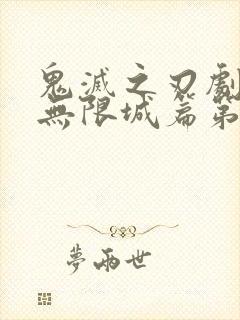 鬼滅之刃劇
無限城篇第
夢兩世